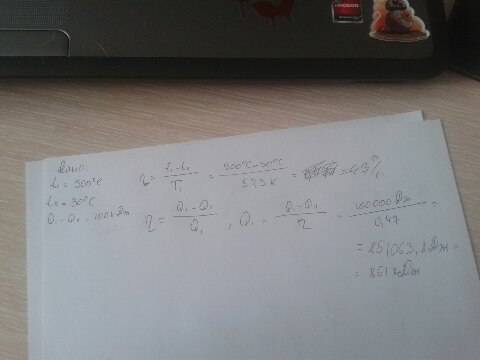 Дано:
t₁ = 300°C
t₂ = 30°C
Q₁ - Q₂ = 100кДж
η = (t₁ - t₂) / T₁ = (300°C - 30°C) / 573 K = 47%
η = (Q₁ - Q₂) / Q₁ , Q₁ = (Q₁ - Q₂) / η = 100000 Дж / 0,47 =
= Дж =
= кДж